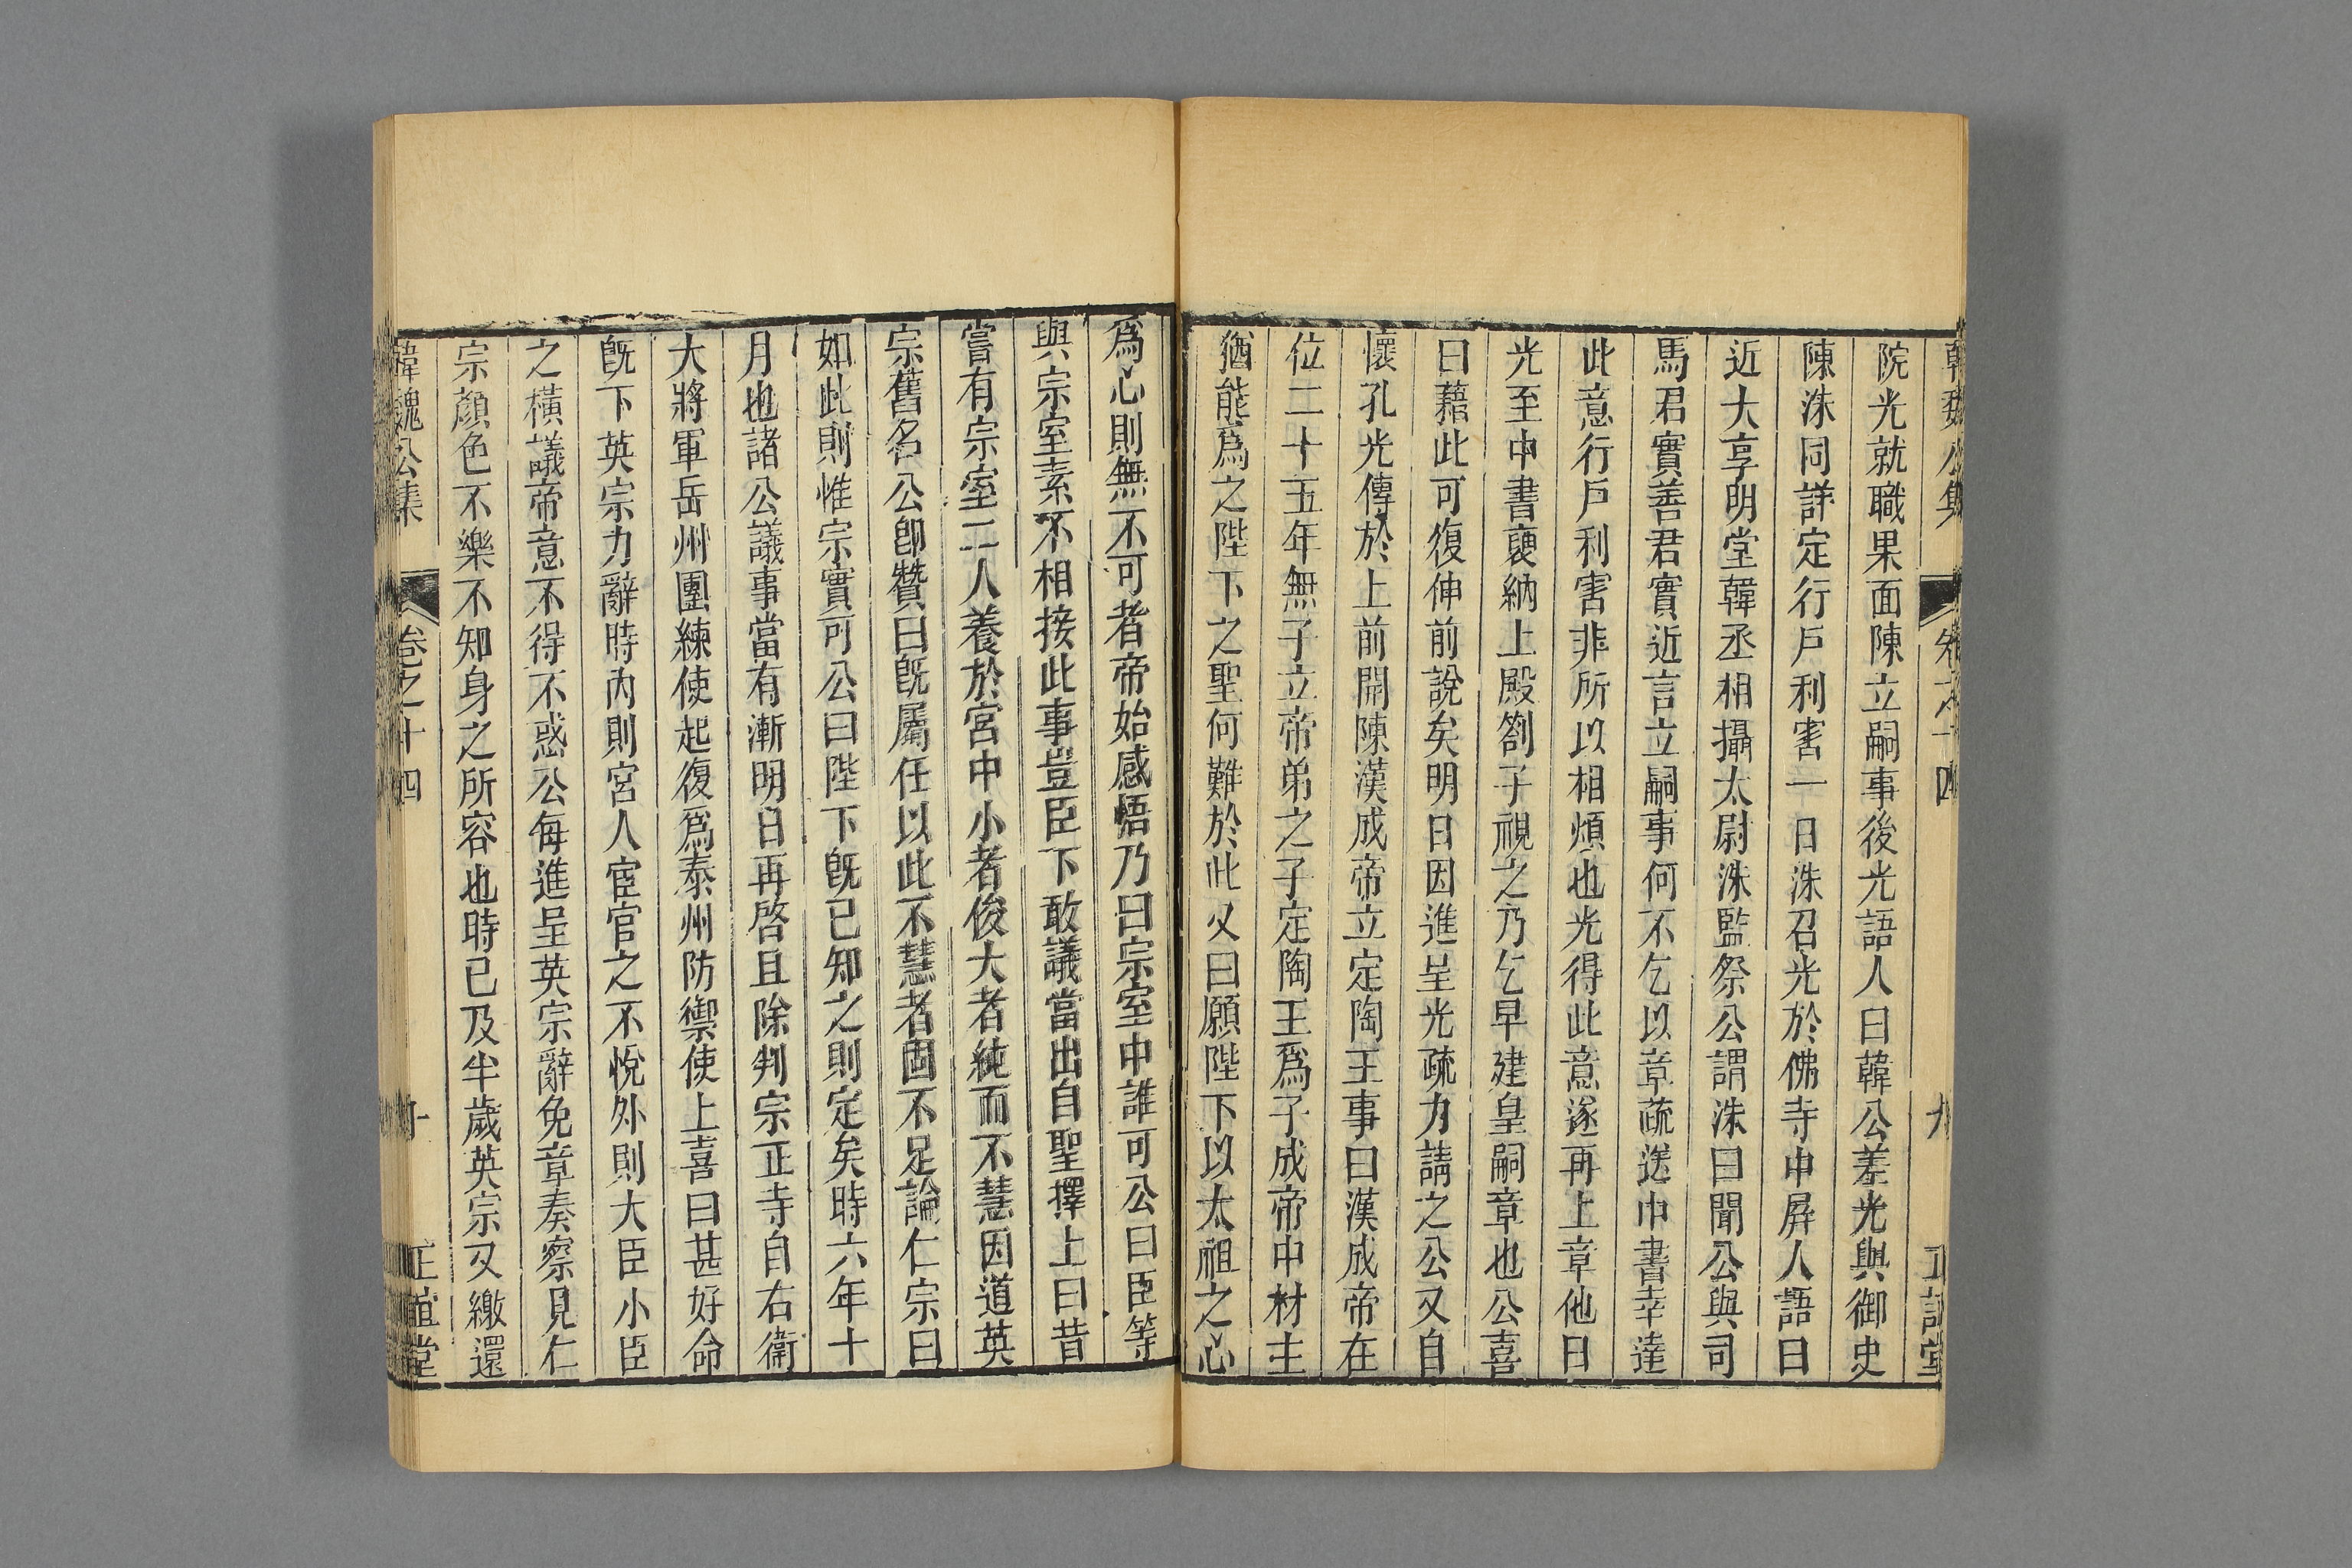 韓魏公集 卷之十四 九 正誼堂
院光就職果面陳立嗣事後光語人曰韓公差光與御史
陳洙同詳定行戶利害一日洙召光於佛寺中屏人語曰
近大享明堂韓丞相攝太尉洙監祭公謂洙曰聞公與司
馬君實善君實近言立嗣事何不乞以章疏送中書幸達
此意行戶利害非所以相煩也光得此意遂再上章他日
光至中書褏納上殿劄子視之乃乞早建皇嗣章也公喜
曰藉此可復伸前說矣明日因進呈光疏力請之公又自
懷孔光傳於上前開陳漢成帝立定陶王事曰漢成帝在
位二十五年無子立帝弟之子定陶王為子成帝中材主
猶能為之陛下之聖何難於此又曰願陛下以太祖之心
為心則無不可者帝始感悟乃曰宗室中誰可公曰臣等
與宗室素不相接此事豈臣下敢議當出自聖擇上曰昔
嘗有宗室二人養於宮中小者俊大者純而不慧因道英
宗舊名公卽贊曰旣屬任以此不慧者固不足論仁宗曰
如此則惟宗實可公曰陛下旣已知之則定矣時六年十
月也諸公議事當有漸明日再啓且除判宗正寺自右衛
大將軍岳州團練使起復為泰州防禦使上喜曰甚好命
旣下英宗力辭時內則宮人宦官之不悅外則大臣小臣
之橫議帝意不得不惑公每進呈英宗辭免章奏察見仁
宗顏色不樂不知身之所容也時已及半歲英宗又繳還
韓魏公集 卷之十四 十 正誼堂